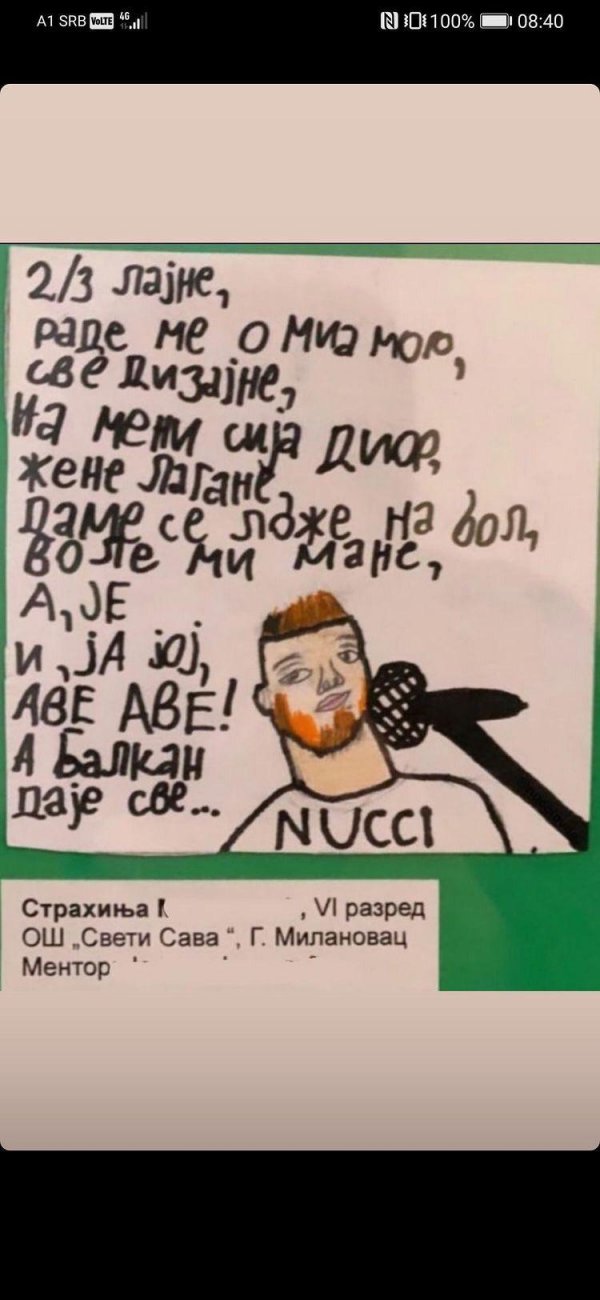 A1 SRB VoLTE 4G 100% 08:40
2/3 лајне,
раде ме о миа мор,
све дизајне,
На мени сија диор,
жене лагане,
Даме се ложе на бол,
воле ми мане,
А, ЈЕ
и, јА јој,
АВЕ АВЕ!
А Балкан
даје све...
NUCCI
Страхиња , VI разред
ОШ „Свети Сава“, Г. Милановац
Ментор